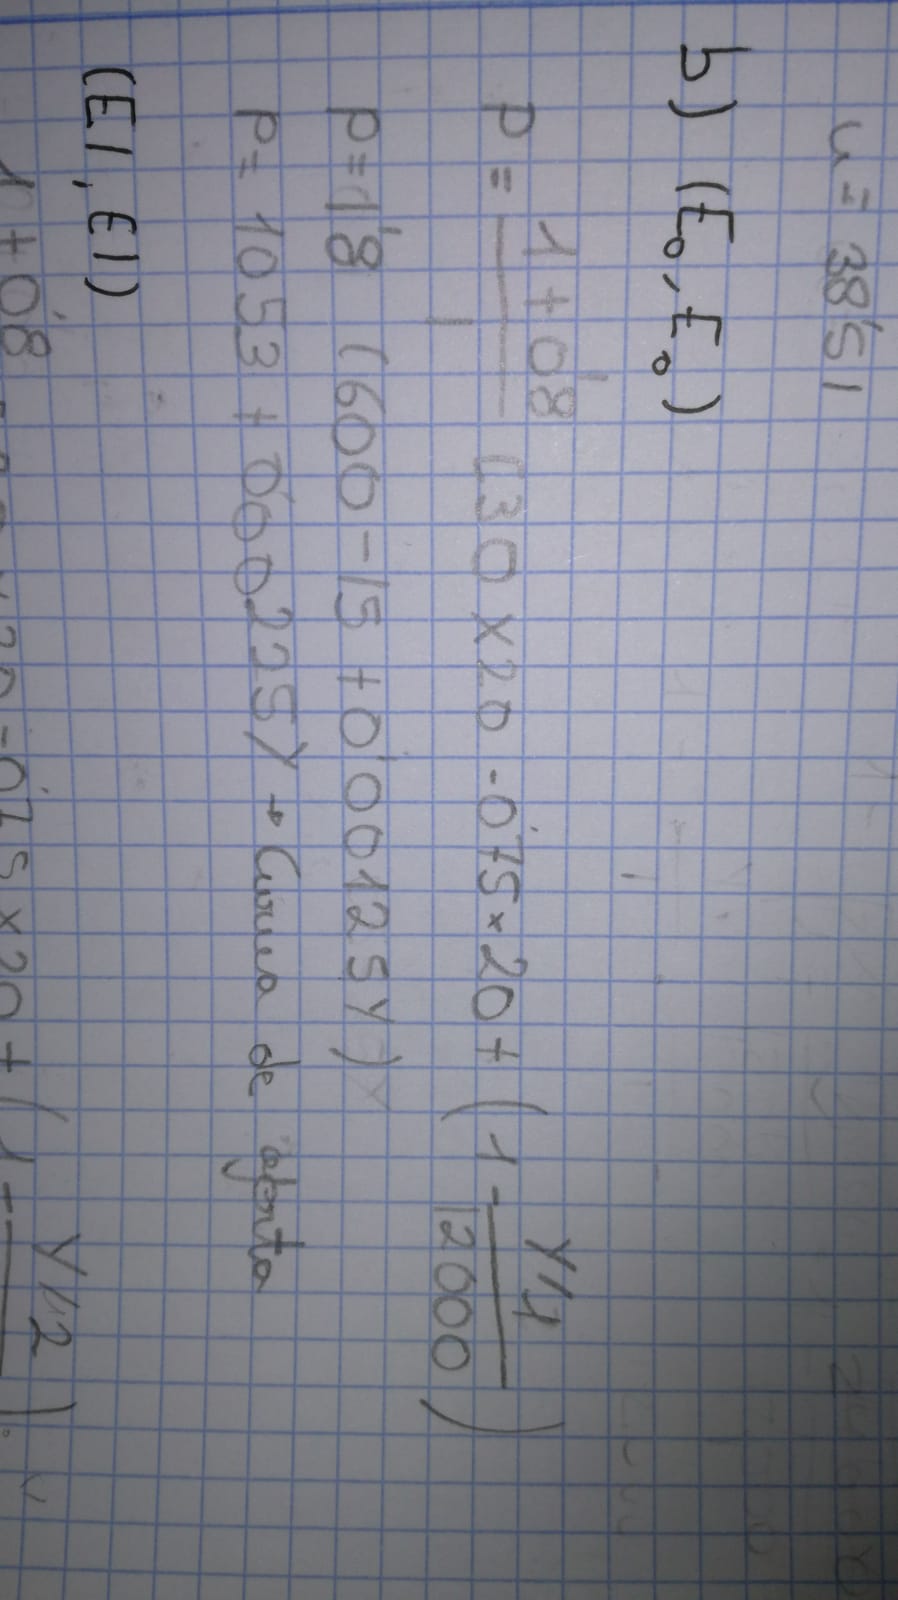 u = 38'51
b) (E0, E0)
P = 1+0'8 / 1 (30 x 20 - 0'75 x 20 + (1 - Y/1 / 12000)
P = 1'8 (600 - 15 + 0'00125Y)
P = 1053 + 0'00225Y → Curva de oferta
(E1, E1)
1+0'8 x 20 - 0'75 x 20 + (1 - Y/1'2